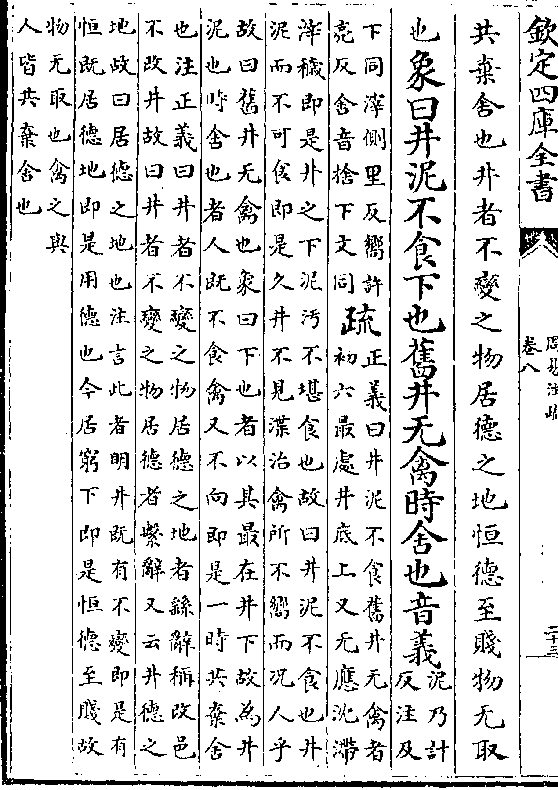 欽定四庫全書
卷八
共棄舍也井者不變之物居德之地恒德至賤物无取
也象曰井泥不食下也舊井无禽時舍也音義
泥乃計
反注及
下同滓側里反嚮許
亮反舍音捨下文同
疏
正義曰井泥不食舊井无禽者
初六最處井底上又无應沈滯
滓穢即是井之下泥汚不堪食也故曰井泥不食也井
泥而不可食即是久井不見渫治禽所不嚮而況人乎
故曰舊井无禽也象曰下也者以其最在井下故為井
泥也時舍也者人既不食禽又不向即是一時共棄舍
也注正義曰井者不變之物居德之地者繇辭稱改邑
不改井故曰井者不變之物居德者繫辭又云井德之
地故曰居德之地也注言此者明井既有不變即是有
恒既居德地即是用德也今居窮下即是恒德至賤故
物无取也禽之與
人皆共棄舍也